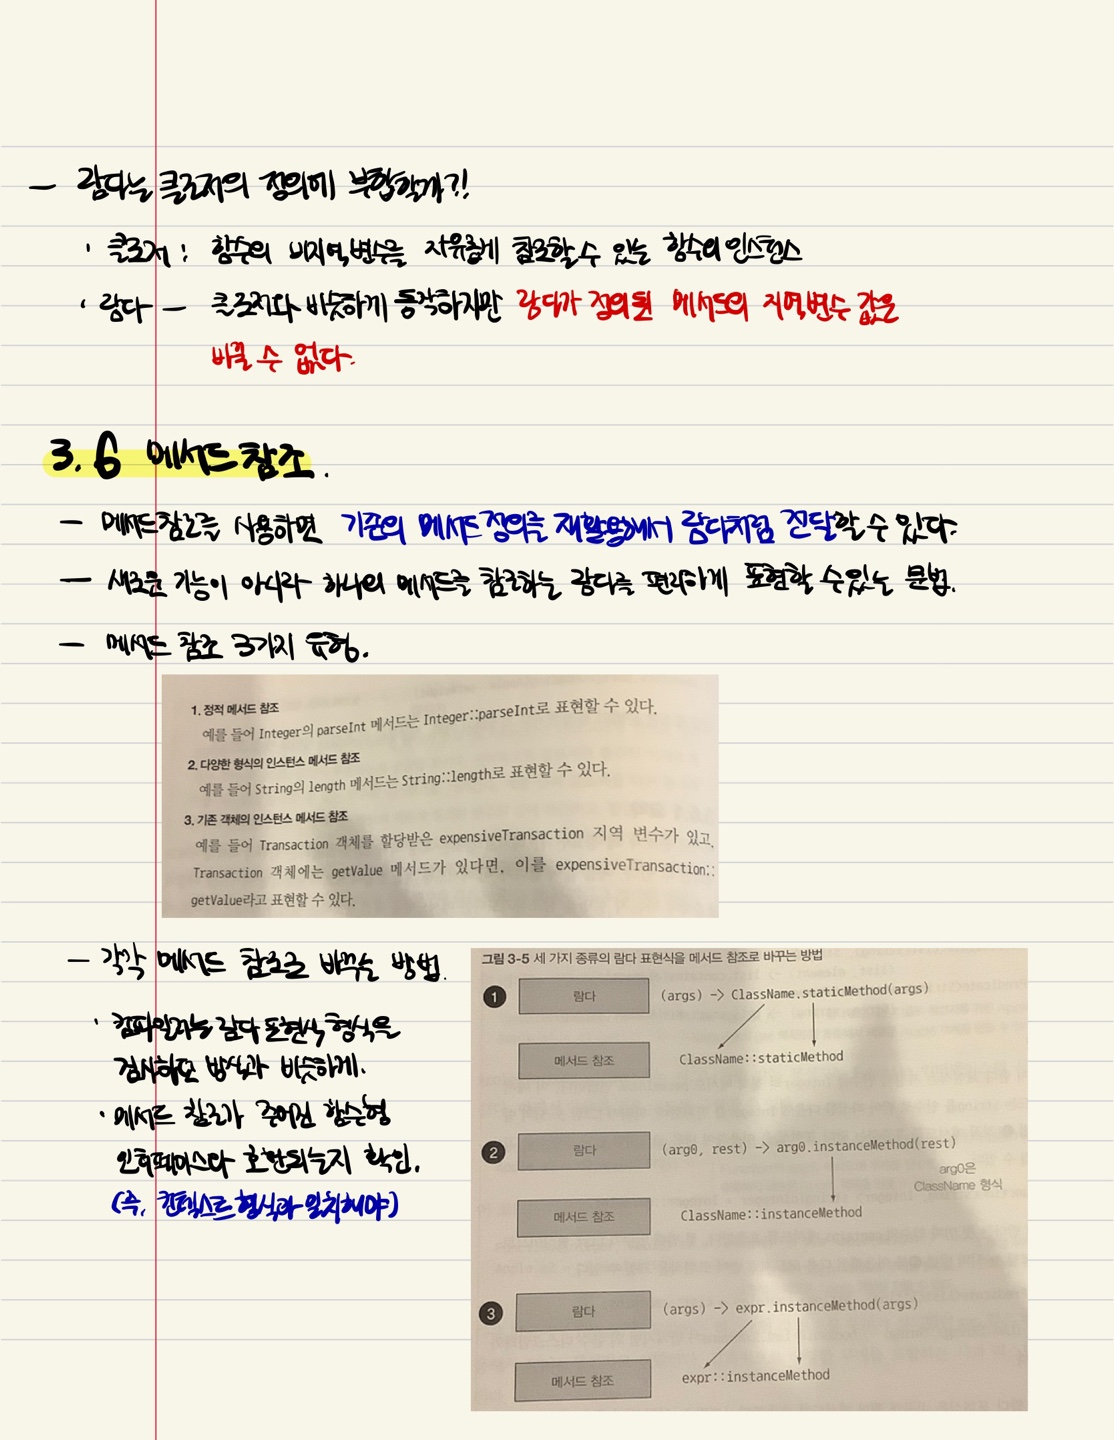 - 람다는 클로저의 정의에 부합할까?!
· 클로저 : 함수의 비지역변수를 자유롭게 참조할 수 있는 함수의 인스턴스
· 람다 - 클로저와 비슷하게 동작하지만 람다가 정의된 메서드의 지역변수 값은
바꿀 수 없다.
3. 6 메서드 참조.
- 메서드 참조를 사용하면 기존의 메서드 정의를 재활용해서 람다처럼 전달할 수 있다.
- 새로운 기능이 아니라 하나의 메서드를 참조하는 람다를 편리하게 표현할 수 있는 문법.
- 메서드 참조 3가지 유형.
1. 정적 메서드 참조
예를 들어 Integer의 parseInt 메서드는 Integer::parseInt로 표현할 수 있다.
2. 다양한 형식의 인스턴스 메서드 참조
예를 들어 String의 length 메서드는 String::length로 표현할 수 있다.
3. 기존 객체의 인스턴스 메서드 참조
예를 들어 Transaction 객체를 할당받은 expensiveTransaction 지역 변수가 있고,
Transaction 객체에는 getValue 메서드가 있다면, 이를 expensiveTransaction::
getValue라고 표현할 수 있다.
- 각각 메서드 참조로 바꾸는 방법.
· 컴파일러는 람다 표현식 형식을
검사하던 방식과 비슷하게.
· 메서드 참조가 주어진 함수형
인터페이스와 호환되는지 확인.
(즉, 컨텍스트 형식과 일치해야)
그림 3-5 세 가지 종류의 람다 표현식을 메서드 참조로 바꾸는 방법
1 람다 (args) -> ClassName.staticMethod(args)
메서드 참조 ClassName::staticMethod
2 람다 (arg0, rest) -> arg0.instanceMethod(rest)
arg0은
ClassName 형식
메서드 참조 ClassName::instanceMethod
3 람다 (args) -> expr.instanceMethod(args)
메서드 참조 expr::instanceMethod